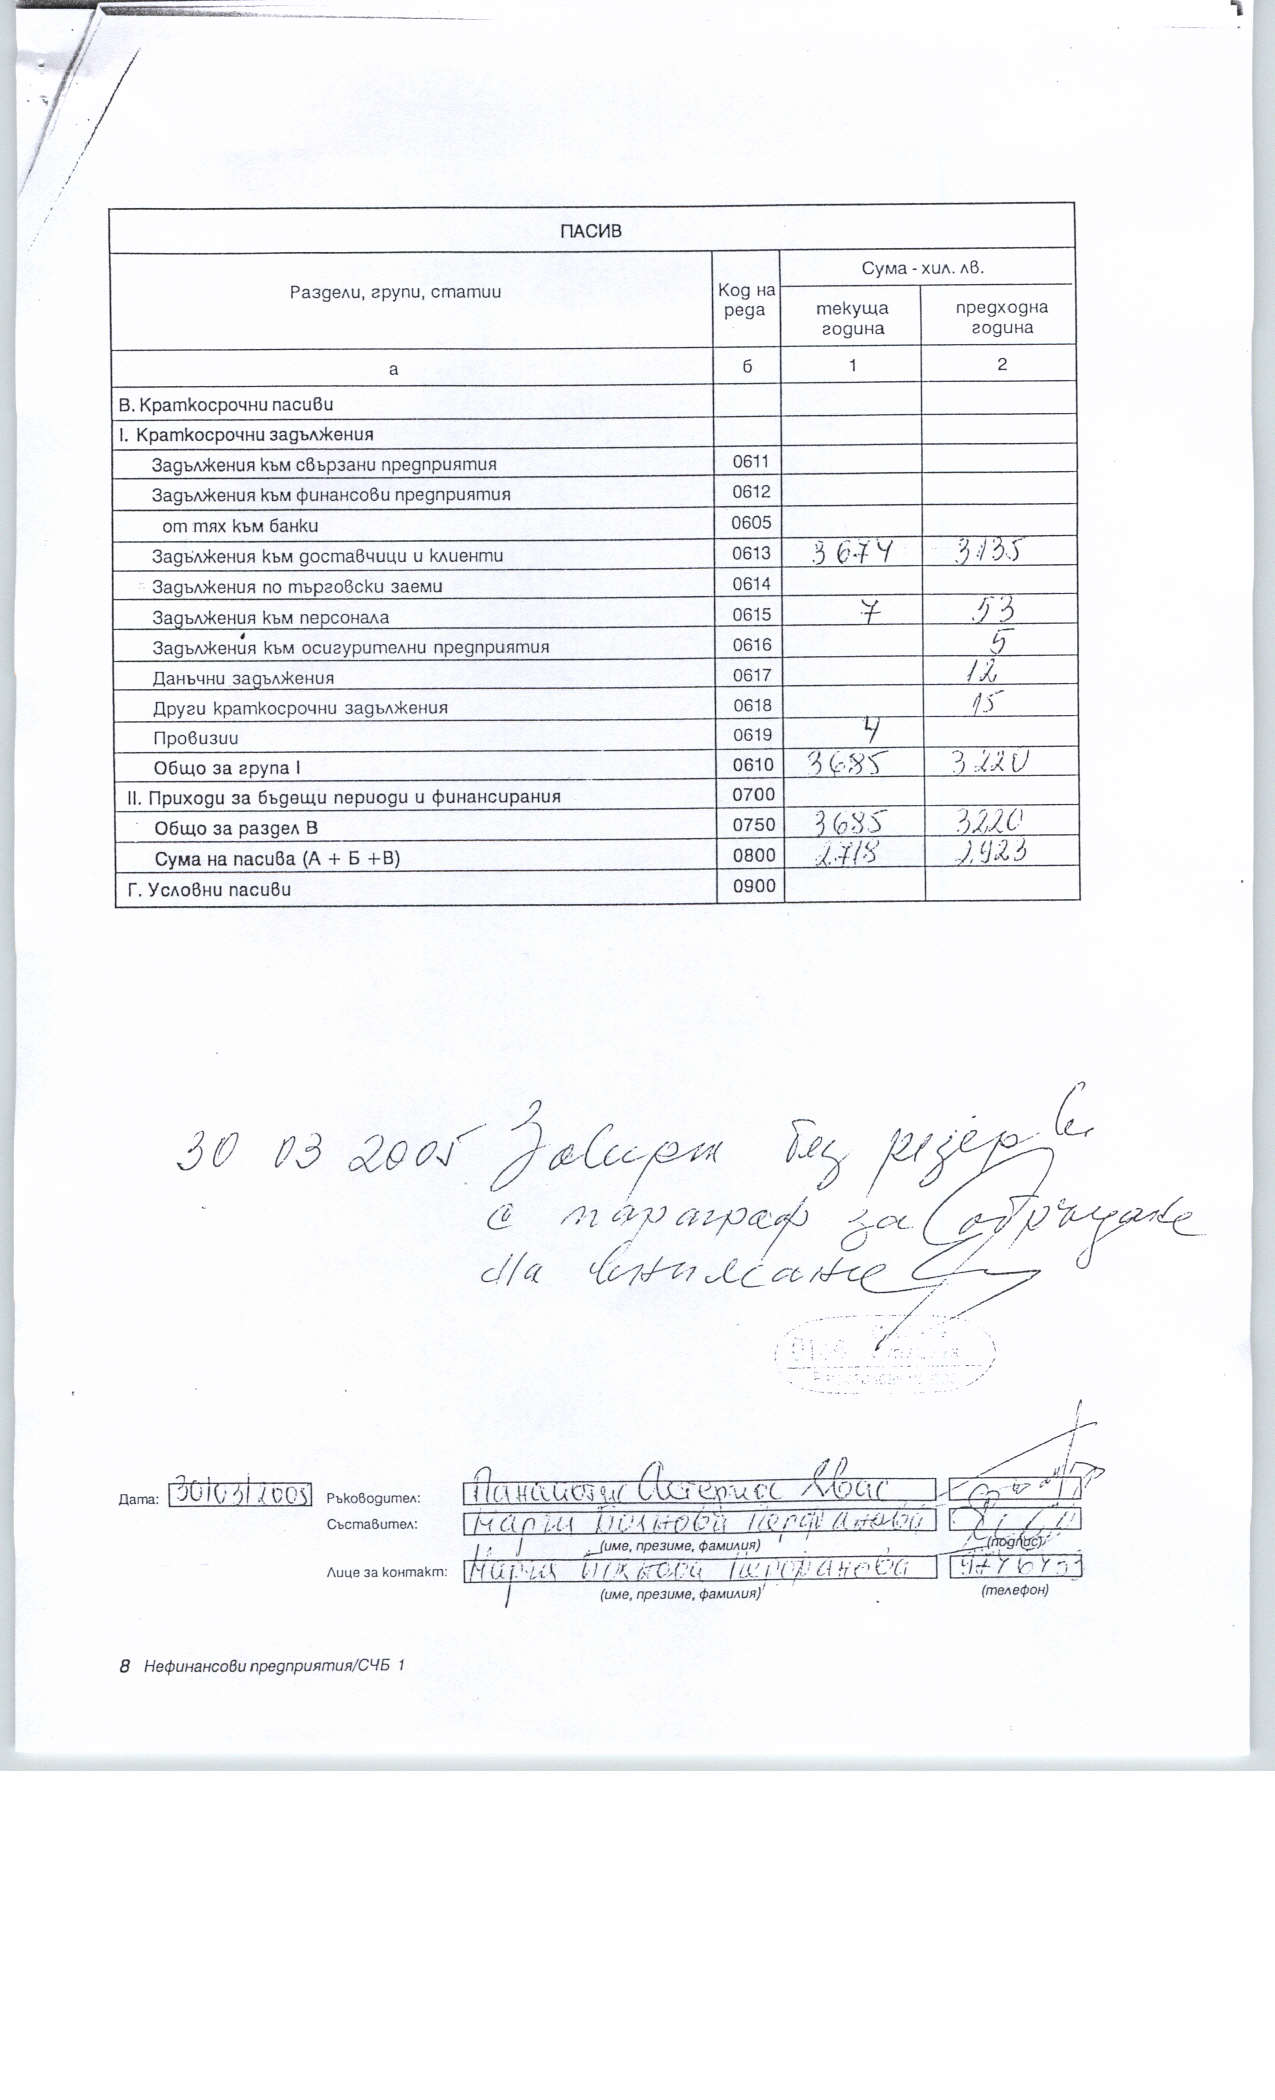 ПАСИВ
Раздели, групи, статии Код на реда Сума - хил. лв.
текуща година предходна година
а б 1 2
В. Краткосрочни пасиви
I. Краткосрочни задължения
Задължения към свързани предприятия 0611
Задължения към финансови предприятия 0612
от тях към банки 0605
Задължения към доставчици и клиенти 0613 3674 3135
Задължения по търговски заеми 0614
Задължения към персонала 0615 7 53
Задължения към осигурителни предприятия 0616 5
Данъчни задължения 0617 12
Други краткосрочни задължения 0618 15
Провизии 0619 4
Общо за група I 0610 3685 3220
II. Приходи за бъдещи периоди и финансирания 0700
Общо за раздел В 0750 3685 3220
Сума на пасива (А + Б +В) 0800 2718 2923
Г. Условни пасиви 0900
30 03 2005 Заверт без резерви
с параграф за обръщане
на внимание
Дата: 30/03/2005 Ръководител:
Съставител: Мария
(име, презиме, фамилия) (подпис)
Лице за контакт: Мария
(име, презиме, фамилия) (телефон)
8 Нефинансови предприятия/СЧБ 1